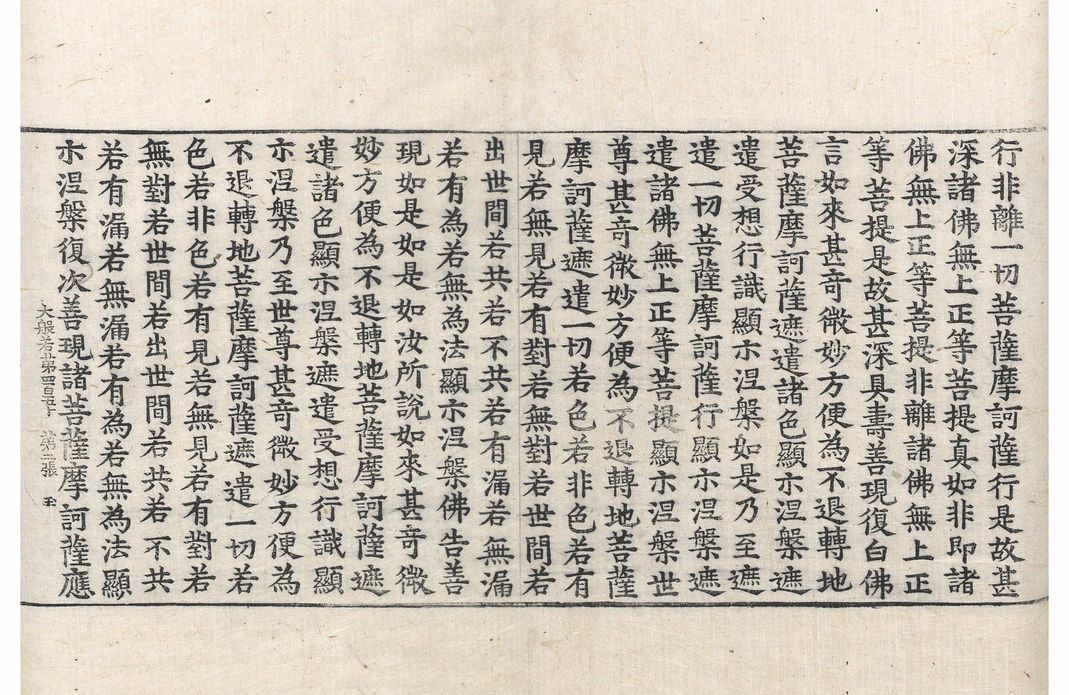 行非離一切菩薩摩訶薩行是故甚
深諸佛無上正等菩提真如非即諸
佛無上正等菩提非離諸佛無上正
等菩提是故甚深具壽善現復白佛
言如來甚奇微妙方便為不退轉地
菩薩摩訶薩遮遣諸色顯示涅槃遮
遣受想行識顯示涅槃如是乃至遮
遣一切菩薩摩訶薩行顯示涅槃遮
遣諸佛無上正等菩提顯示涅槃世
尊甚奇微妙方便為不退轉地菩薩
摩訶薩遮遣一切若色若非色若有
見若無見若有對若無對若世間若
出世間若共若不共若有漏若無漏
若有為若無為法顯示涅槃佛告善
現如是如是如汝所說如來甚奇微
妙方便為不退轉地菩薩摩訶薩遮
遣諸色顯示涅槃遮遣受想行識顯
示涅槃乃至世尊甚奇微妙方便為
不退轉地菩薩摩訶薩遮遣一切若
色若非色若有見若無見若有對若
無對若世間若出世間若共若不共
若有漏若無漏若有為若無為法顯
示涅槃復次善現諸菩薩摩訶薩應
大般若第四百五十 第三張 玉